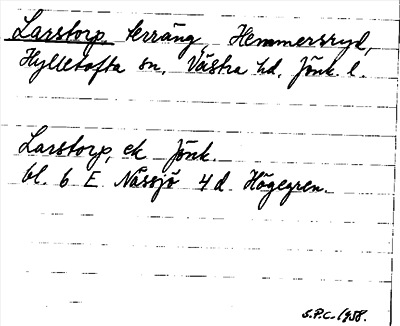 Larstorp, terräng, Hemmersryd,
Hylletofta sn, Västra hd, Jönk. l.
Larstorp, ek Jönk.
bl. 6 E Nässjö 4d Högegren.
S.P.C. 1958.